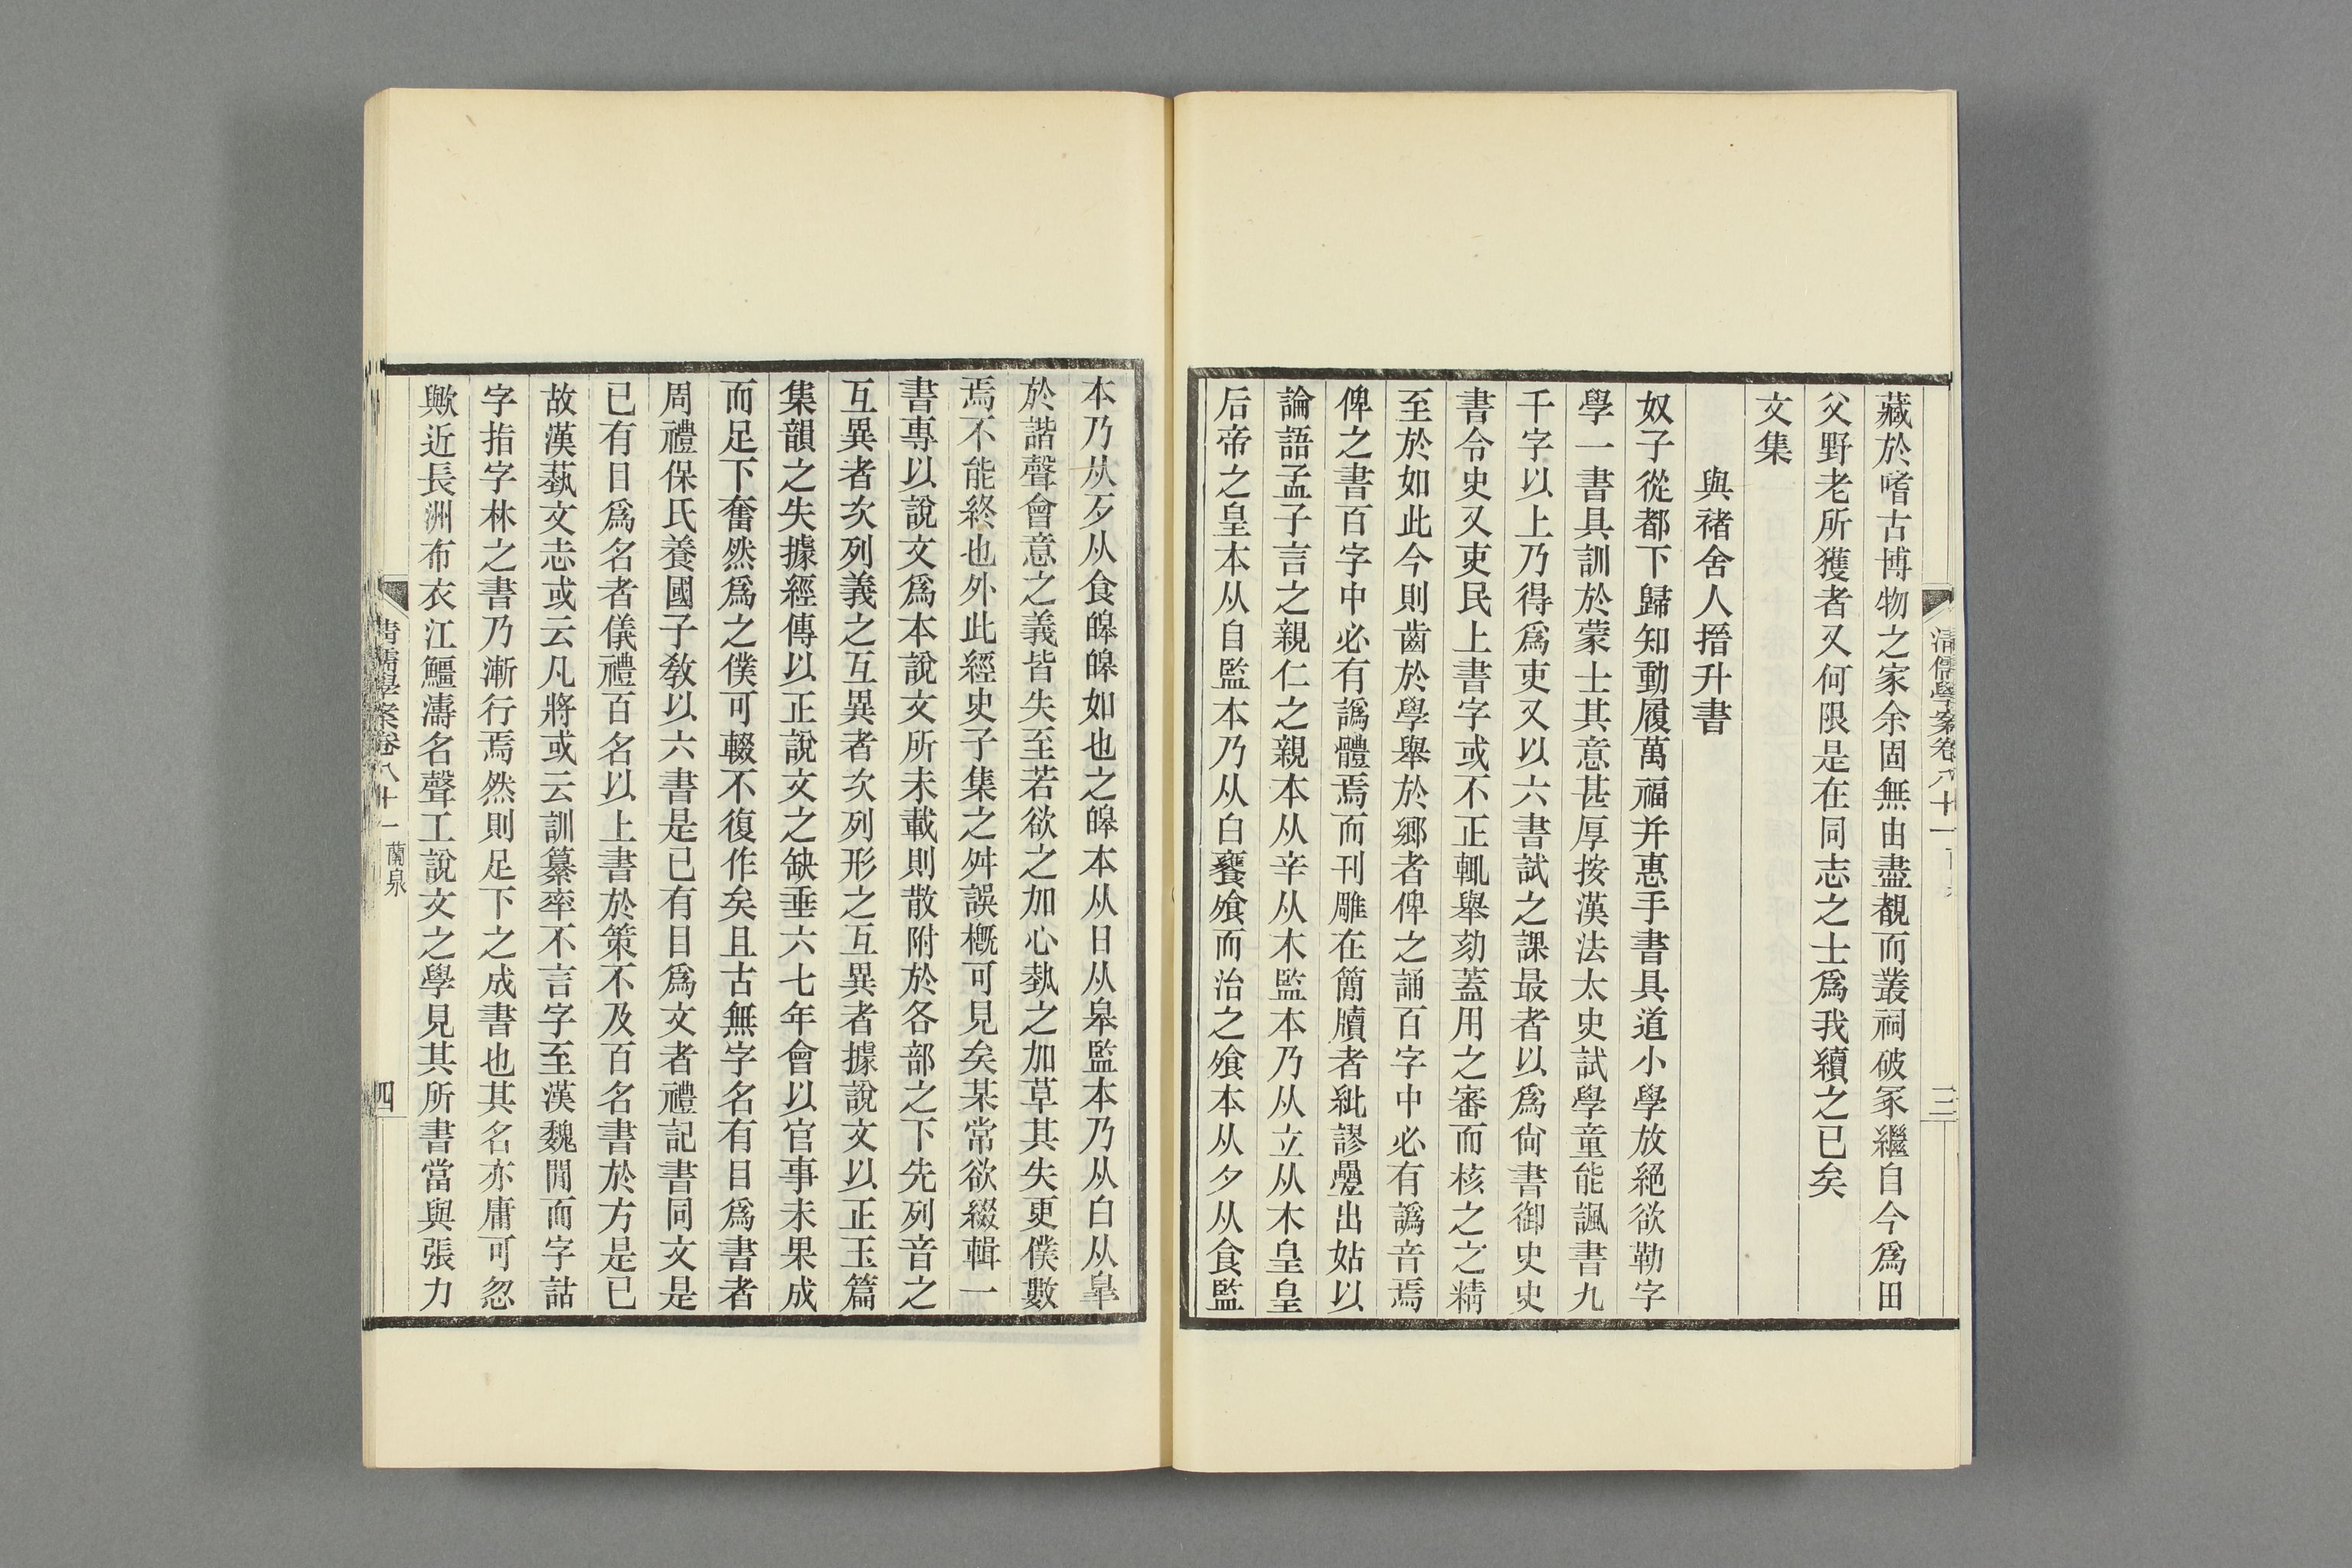 清儒學案卷八十一
三
藏於嗜古博物之家余固無由盡覩而叢祠破冢繼自今爲田
父野老所獲者又何限是在同志之士爲我續之已矣
文集
與褚舍人搢升書
奴子從都下歸知動履萬福并惠手書具道小學放絕欲勒字
學一書具訓於蒙士其意甚厚按漢法太史試學童能諷書九
千字以上乃得爲吏又以六書試之課最者以爲尙書御史史
書令史又吏民上書字或不正輒舉劾蓋用之審而核之之精
至於如此今則齒於學舉於鄉者俾之誦百字中必有譌音焉
俾之書百字中必有譌體焉而刊雕在簡牘者紕謬疊出姑以
論語孟子言之親仁之親本从辛从木監本乃从立从木皇皇
后帝之皇本从自監本乃从白饔飧而治之飧本从夕从食監
本乃从歹从食皥皥如也之皥本从日从皋監本乃从白从臯
於諧聲會意之義皆失至若欲之加心埶之加草其失更僕數
焉不能終也外此經史子集之舛誤槪可見矣某常欲綴輯一
書專以說文爲本說文所未載則散附於各部之下先列音之
互異者次列義之互異者次列形之互異者據說文以正玉篇
集韻之失據經傳以正說文之缺垂六七年會以官事未果成
而足下奮然爲之僕可輟不復作矣且古無字名有目爲書者
周禮保氏養國子敎以六書是已有目爲文者禮記書同文是
已有目爲名者儀禮百名以上書於策不及百名書於方是已
故漢蓺文志或云凡將或云訓纂率不言字至漢魏閒而字詁
字指字林之書乃漸行焉然則足下之成書也其名亦庸可忽
歟近長洲布衣江鱷濤名聲工說文之學見其所書當與張力
清儒學案卷八十一 蘭泉
四